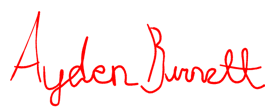 Ayden Burnett